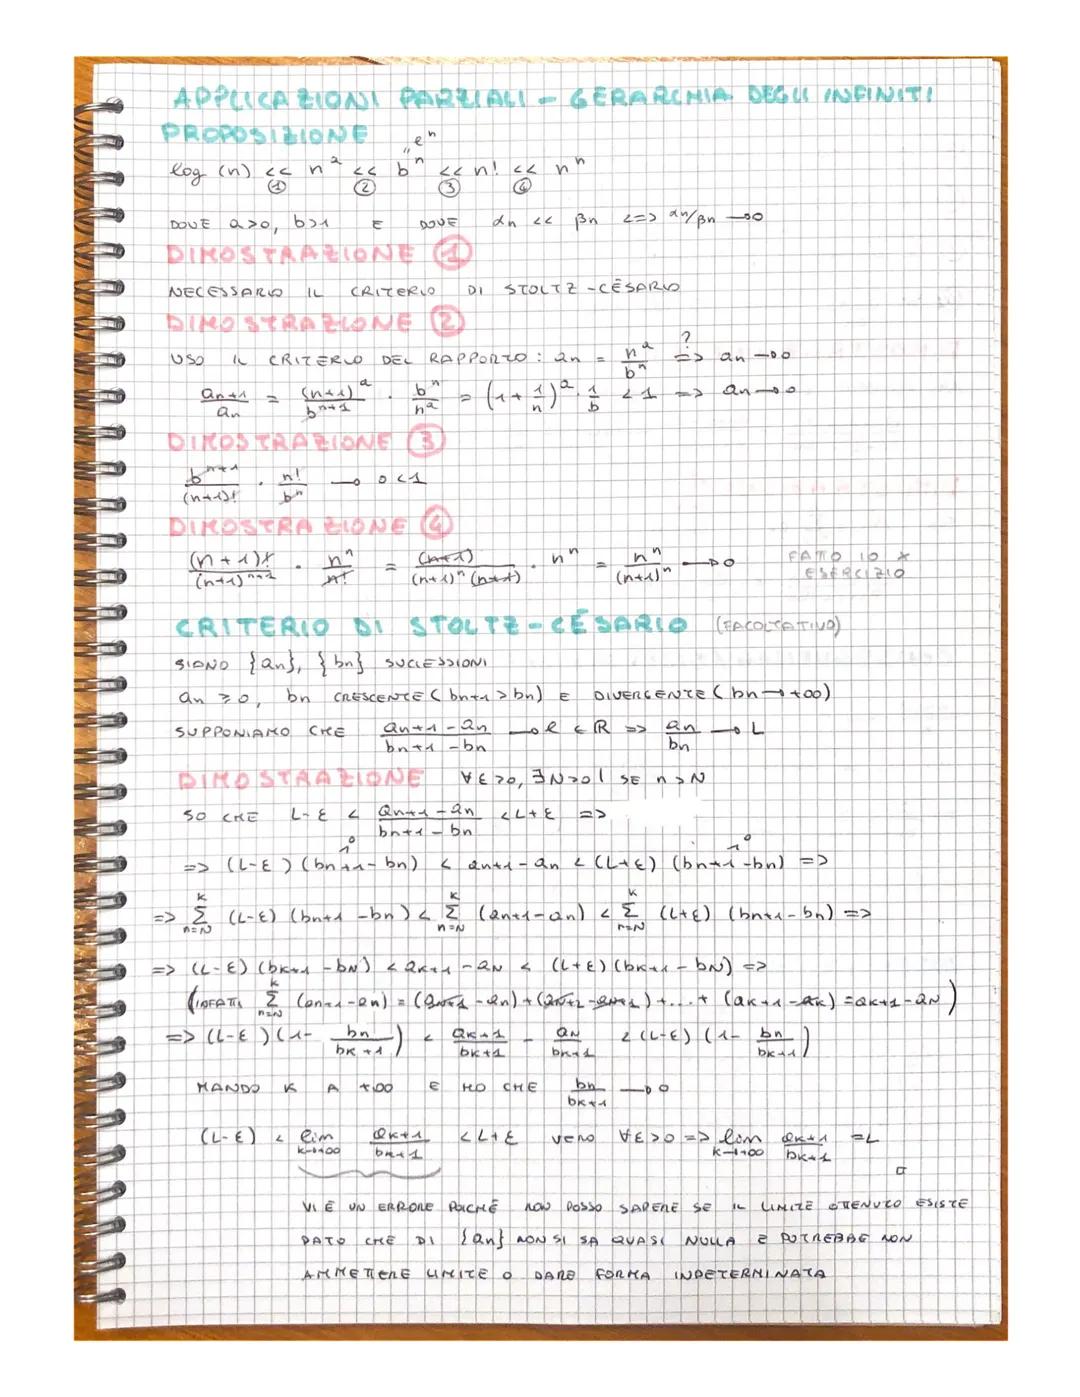 APPLICAZIONI PARZIALI - GERARCHIA DEGLI INFINITI
PROPOSIZIONE
log (n) << n^a << b^n " e^n << n! << n^n
① ② ③ ④
DOVE a>0, b>1 E DOVE αn << βn <=> αn/βn →0
DIMOSTRAZIONE ①
NECESSARIO IL CRITERIO DI STOLTZ-CÉSARIO
DIMOSTRAZIONE ②
USO IL CRITERIO DEL RAPPORTO: an = n^a/b^n ?=> an →0
an+1/an = (n+1)^a/b^(n+1) · b^n/n^a = (1+1/n)^a · 1/b < 1 => an →0
DIMOSTRAZIONE ③
b^(n+1)/(n+1)! · n!/b^n → 0<1
DIMOSTRAZIONE ④
(n+1)!/(n+1)^(n+1) · n^n/n! = (n+1)/((n+1)^n (n+1)) · n^n = n^n/(n+1)^n → 0
FATTO IO X
ESERCIZIO
CRITERIO DI STOLTZ-CÉSARIO (FACOLTATIVO)
SIANO {an}, {bn} SUCCESSIONI
an ≥0, bn CRESCENTE (bn+1 > bn) E DIVERGENTE (bn → +∞)
SUPPONIAMO CHE (an+1 - an)/(bn+1 - bn) → ℓ ∈ ℝ => an/bn → L
DIMOSTRAZIONE ∀ε>0, ∃N>0 | SE n>N
SO CHE L-ε < (an+1 - an)/(bn+1 - bn) < L+ε =>
=> (L-ε) (bn+1 - bn) < an+1 - an < (L+ε) (bn+1 - bn) =>
=> Σ_{n=N}^{K} (L-ε) (bn+1 - bn) < Σ_{n=N}^{K} (an+1 - an) < Σ_{n=N}^{K} (L+ε) (bn+1 - bn) =>
=> (L-ε) (bK+1 - bN) < aK+1 - aN < (L+ε) (bK+1 - bN) =>
(INFATTI Σ_{n=N}^{K} (an+1 - an) = (aN+1 - an) + (aN+2 - aN+1) + ... + (aK+1 - aK) = aK+1 - aN)
=> (L-ε) (1 - bn/bK+1) < aK+1/bK+1 - aN/bK+1 < (L-ε) (1 - bn/bK+1)
MANDO K A +∞ E HO CHE bn/bK+1 → 0
(L-ε) < lim_{K→+∞} aK+1/bK+1 < L+ε VERO ∀ε>0 => lim_{K→+∞} aK+1/bK+1 = L
VI È UN ERRORE POICHÉ NON POSSO SAPERE SE IL LIMITE OTTENUTO ESISTE
DATO CHE DI {an} NON SI SA QUASI NULLA E POTREBBE NON
AMMETTERE LIMITE O DARE FORMA INDETERMINATA